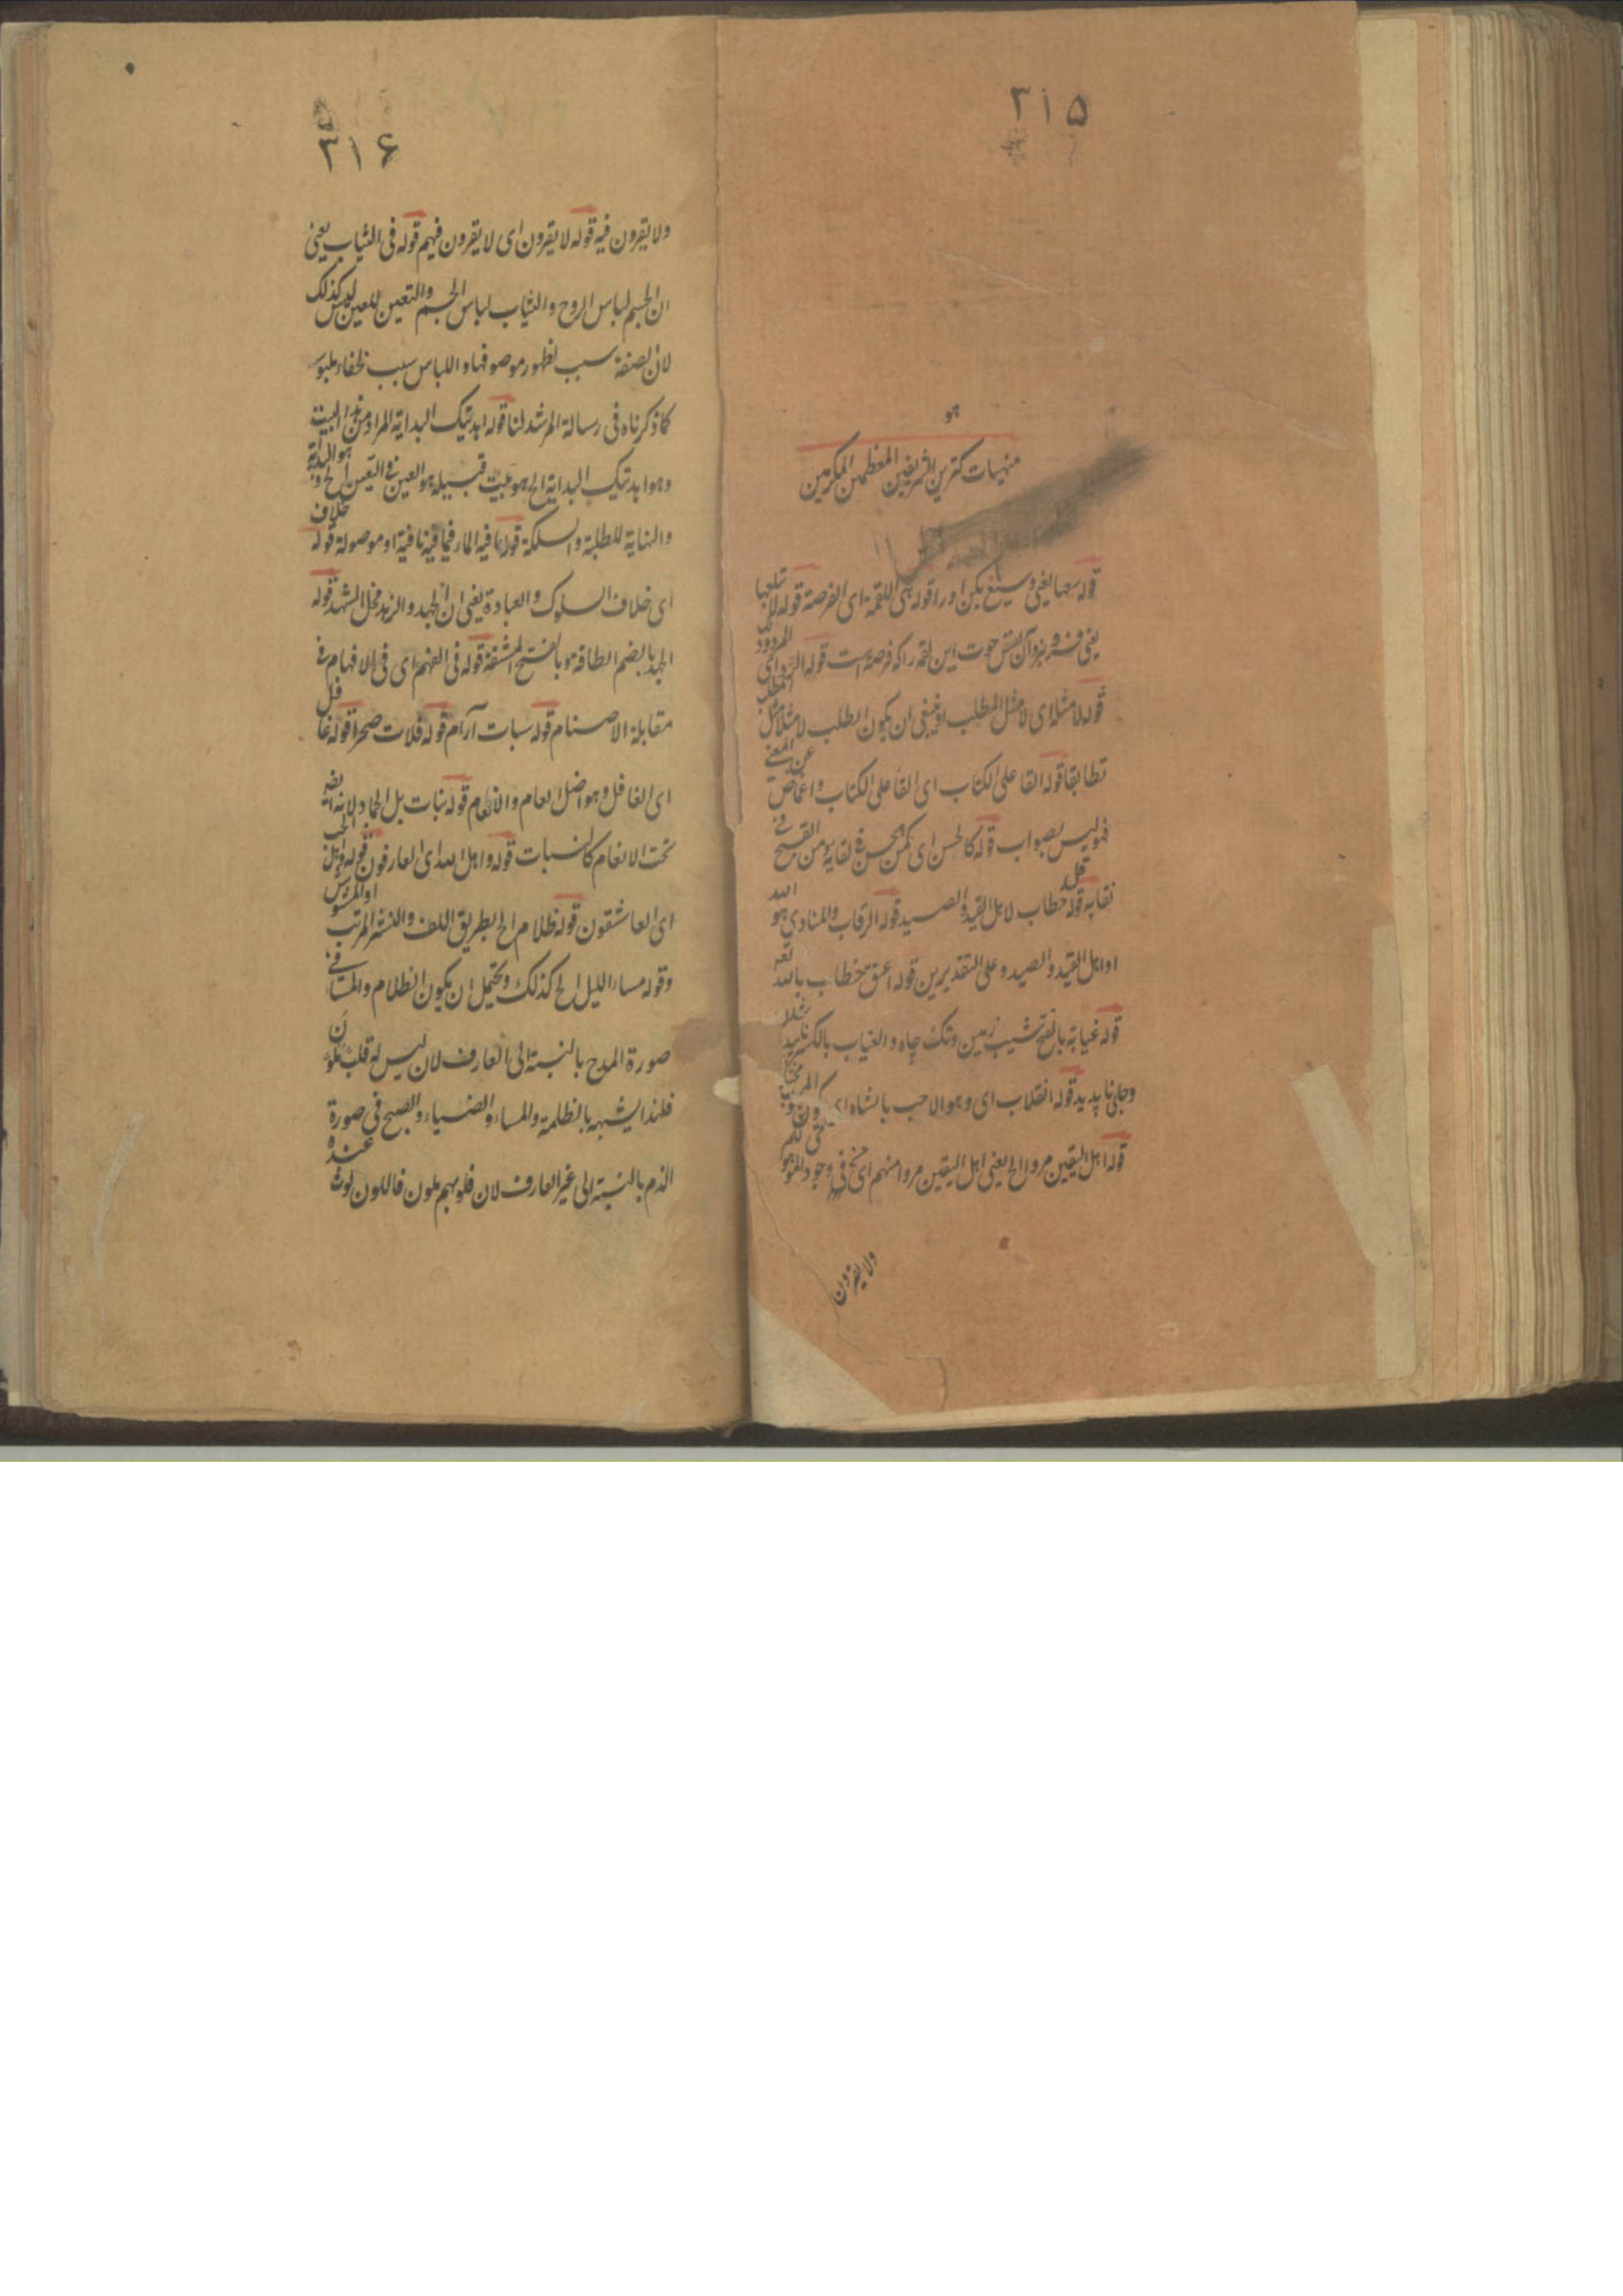 ۳۱۵
هو
منهیات کقرین الشریفین المعظمین المکرمین
قوله سعها یعنی وسیع بکن او را قوله هی اللقمة ای الفرصة قوله تبلعها
یعنی فرو برد آن نفس حوت این لقمه را که فرصة است قوله المردود ای
قوله لا مثله ای لا مثل المطلب او یعنی ان یکون الطلب لا مثلا مثل المطلب
تطابقا قوله القا علی الکتاب ای القا علی الکتاب واغماض عن المعنی
فهو لیس بصواب قوله کالحسن ای کمن یحسن فی نقابه ومن القبح فی
نقابه قوله قل خطاب لاهل القید والصید قوله الرقاب والمنادی هو الله
او اهل القید والصید وعلی التقدیرین قوله اعتق خطاب بالله تعه
قوله غیابة بالفتح نشیب زمین وتک چاه والغیاب بالکسر
وجای ناپدید قوله انقلاب ای وهو الاحب بالشاه
قوله اهل الیقین مروا الخ یعنی اهل الیقین مروا منهم ای فی وجود
ولا یقرون
۳۱۶
ولا یقرون فیه قوله لا یقرون ای لا یقرون فیهم قوله فی الثیاب یعنی
ان الجسم لباس الروح والثیاب لباس الجسم والتعین للعین لیس کذلک
لان الصفة سبب لظهور موصوفها واللباس سبب لخفاء ملبوس
کما ذکرناه فی رسالة المرشد لنا قوله ابدتیک البدایة المراد من هذا البیت
وهو ابدتیک البدایة الخ هو بیت قبیله هو العین فی التعین الخ هو البدایة
والنهایة للطلبة والسلکة قوله ما فیه الماء فما فیه نافیة او موصولة قوله خلاف
ای خلاف السلوک والعبادة یعنی ان الجهد والزهد مخل المشهد قوله
الجهد بالضم الطاقة وبالفتح المشقة قوله فی الفهم ای فی الافهام فی
مقابلة الاصنام قوله سبات آرام قوله فلات صحرا قوله غافل
ای الغافل وهو اضل العام والانعام قوله بنات بل الجماد لانه ایضه
تحت الانعام کالنسبات قوله واهل الله ای العارفون قوله واهل الحب
ای العاشقون قوله ظلام الخ بطریق اللف والنشر المرتب او المشوش
وقوله مساء اللیل الخ کذلک ویحتمل ان یکون الظلام والمساء فی
صورة المدح بالنسبة الی العارف لان لیس له قلب تلون
فلهذا یشبهه بالظلمة والمساء والضیاء والصبح فی صورة
الذم بالنسبة الی غیر العارف لان قلوبهم ملون فاللون لوث عنده